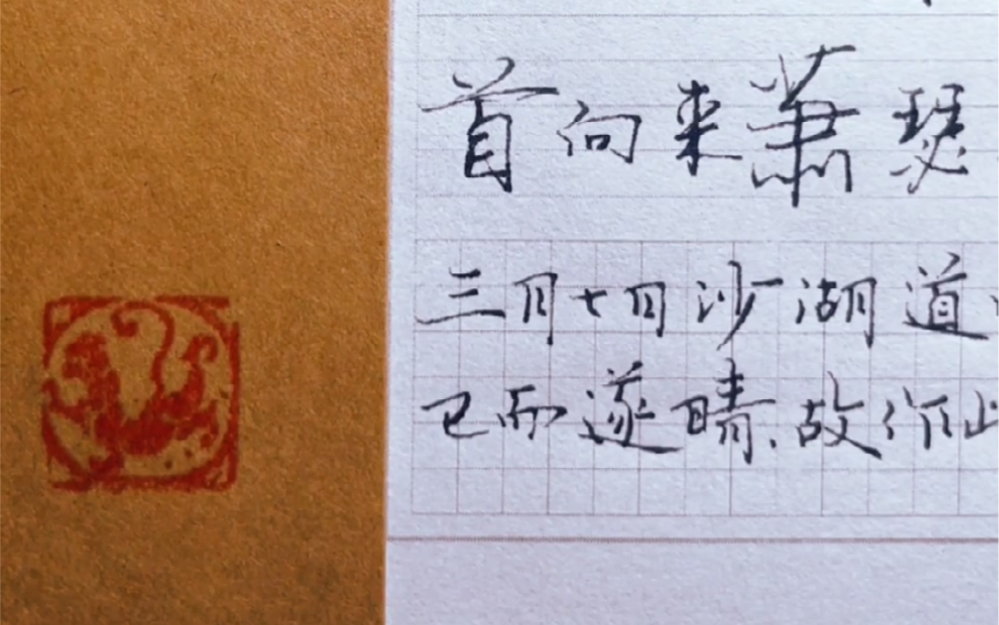 首向来萧瑟
三月七日沙湖道
已而遂晴、故作此